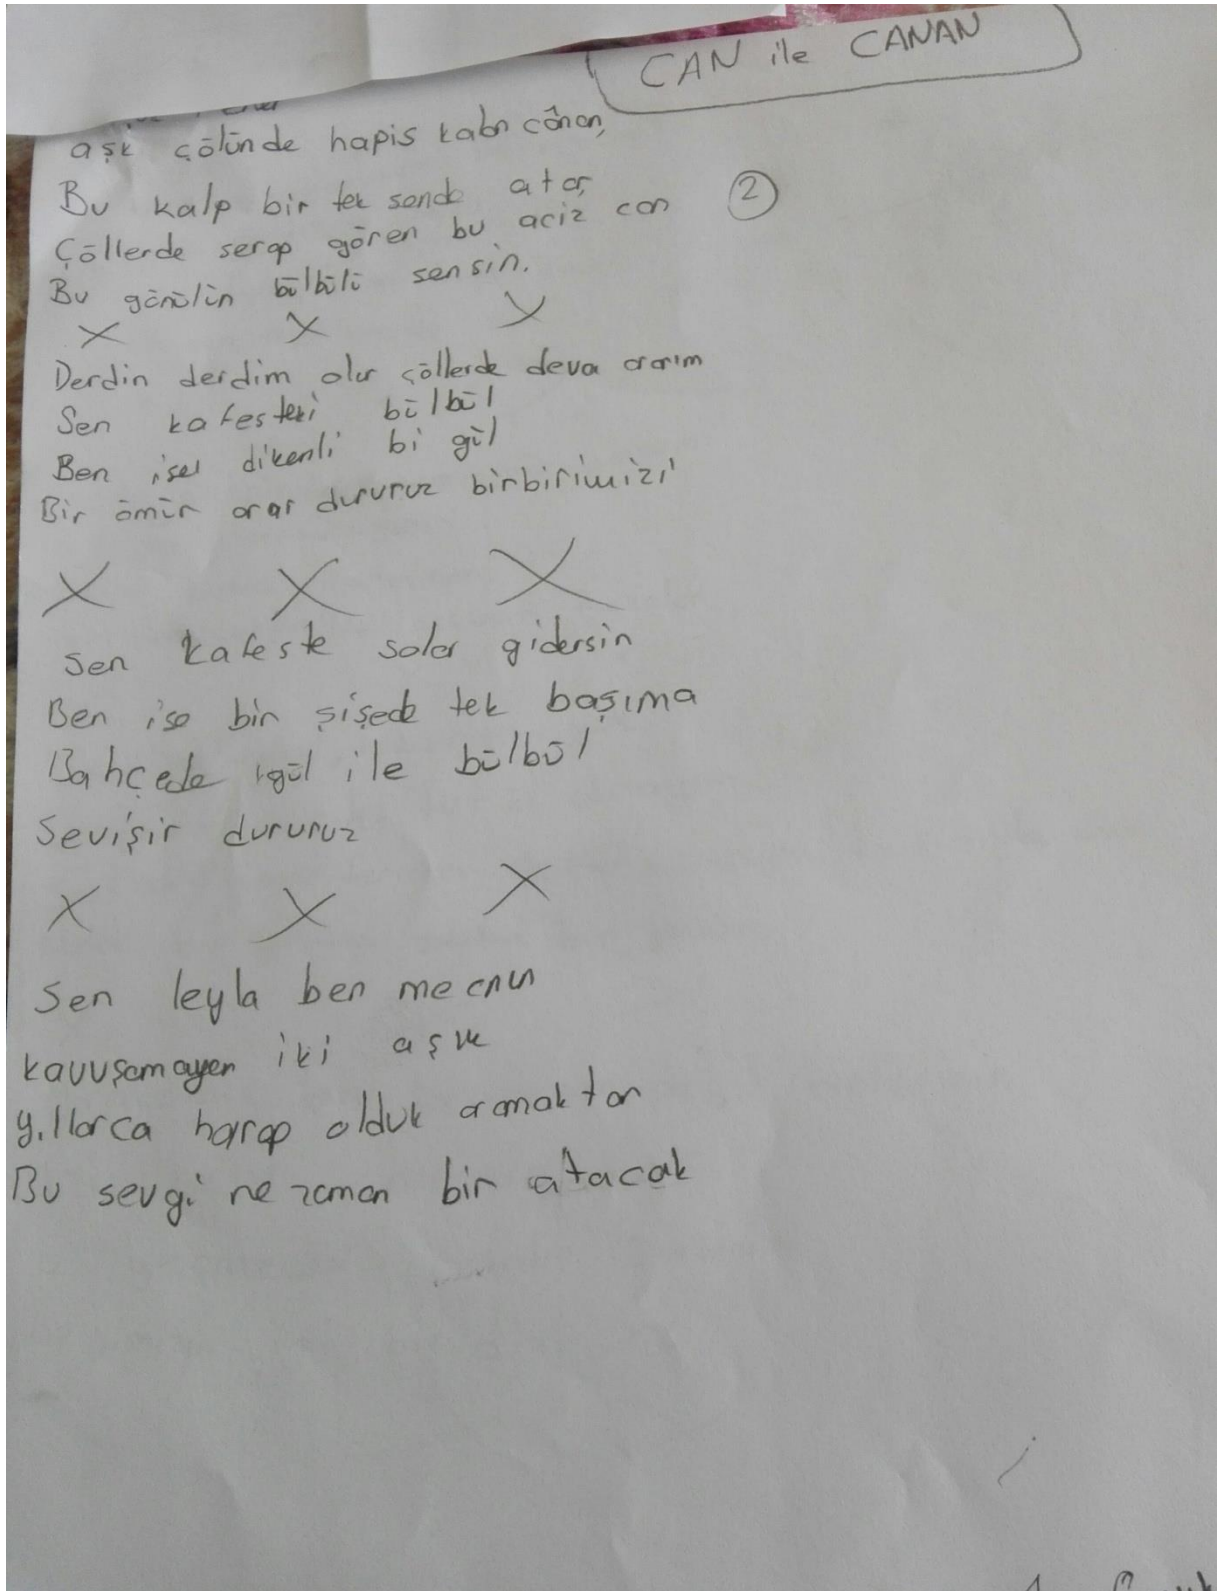 CAN ile CANAN
aşk çölünde hapis kalan cânan,
Bu kalp bir tek sende atar,
Çöllerde serap gören bu aciz can
2
Bu gönülün bülbülü sensin.
X X X
Derdin derdim olur çöllerde deva ararım
Sen kafesteki bülbül
Ben ise dikenli bi gül
Bir ömür arar dururuz birbirimizi
X X X
Sen kafeste solar gidersin
Ben ise bir şişede tek başıma
Bahçede gül ile bülbül
Sevişir dururuz
X X X
Sen leyla ben mecnun
kavuşamayan iki aşk
yıllarca harap olduk aramaktan
Bu sevgi ne zaman bir atacak